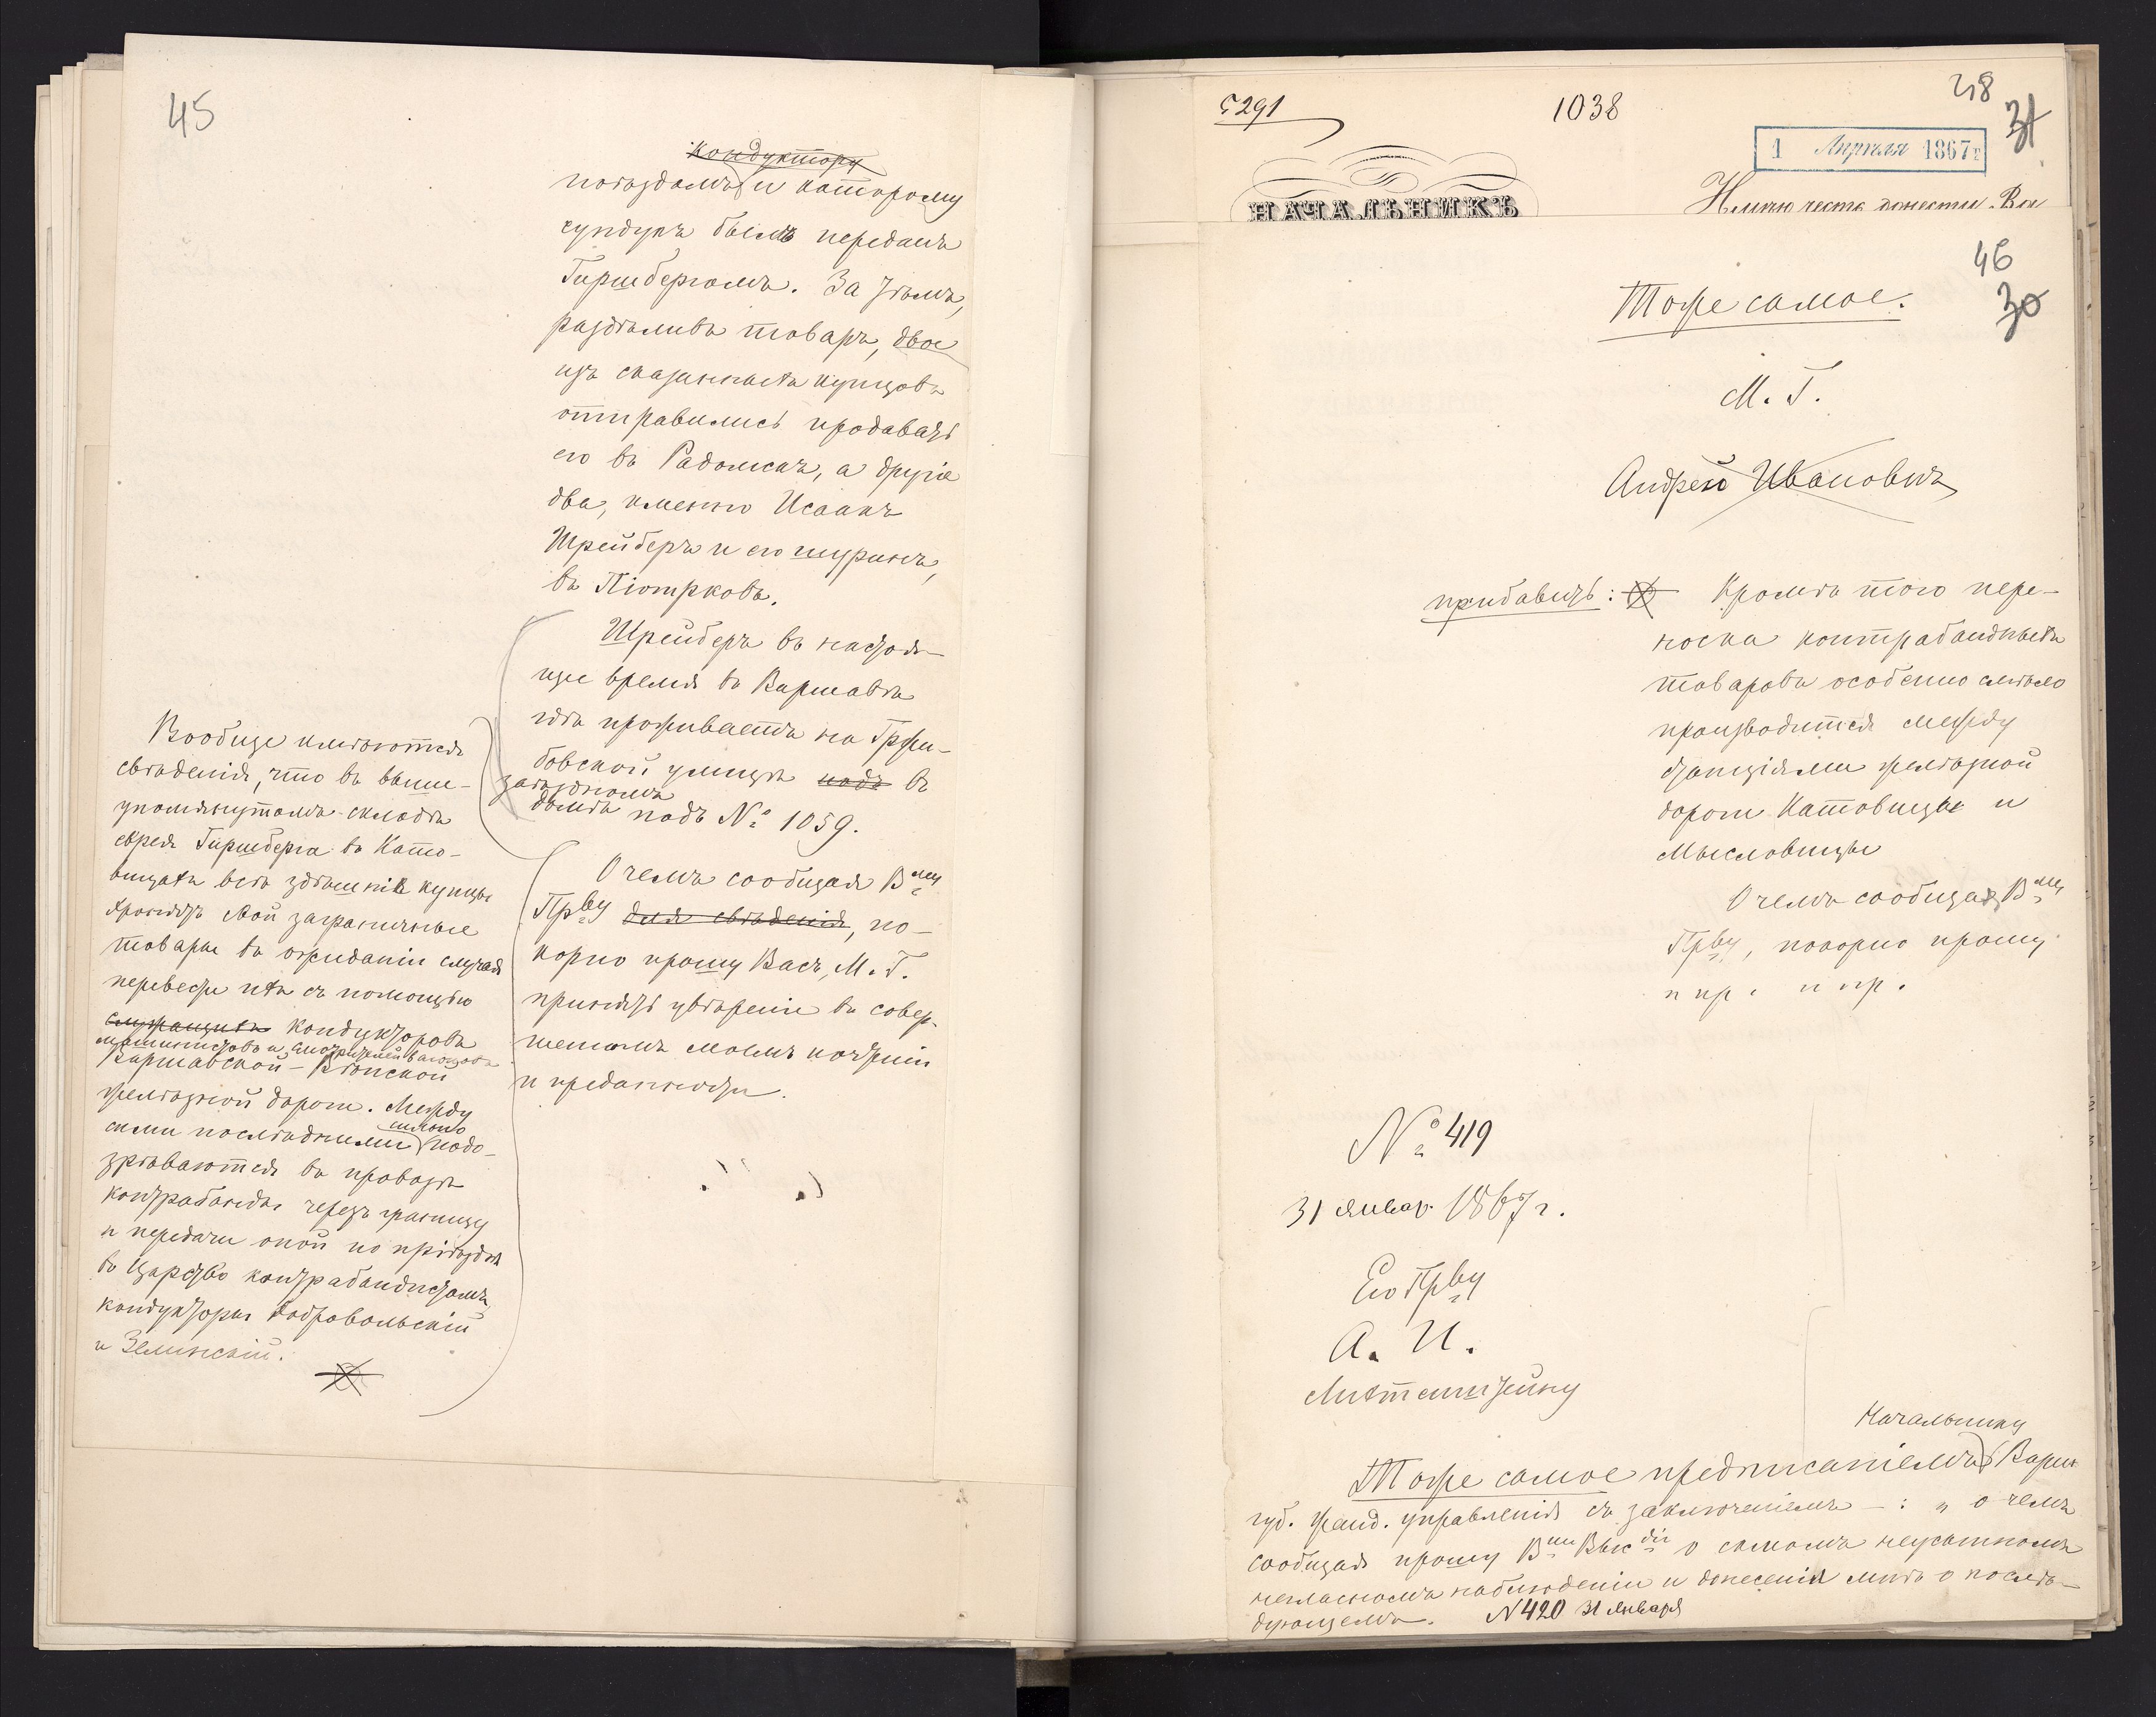 45
кондуктору
поѣздомъ и которому
сундукъ былъ переданъ
Гиршбергомъ. За тѣмъ,
раздѣливъ товаръ, двое
изъ сказанныхъ купцовъ
отправились продавать
его въ Радомскъ, а другіе
два, именно Исаакъ
Шрейберъ и его шуринъ,
въ Піотрковъ.
Шрейберъ въ настоя-
щее время въ Варшавѣ
гдѣ проживаетъ на Гржи-
бовской улицѣ подъ въ
заѣздномъ
домѣ подъ № 1059.
О чемъ сообщая Вму
Прву для свѣденія, по-
корно прошу Васъ, М. Г.
принять увѣреніе въ совер-
шенномъ моемъ почтеніи
и преданности.
Вообще имѣются
свѣденія, что въ выше-
упомянутомъ складѣ
еврея Гиршберга въ Като-
вицахъ всѣ здѣшніе купцы
хранятъ свои заграничные
товары въ ожиданіи случая
перевести ихъ съ помощію
служащихъ кондукторовъ
машинистовъ и смотрителей вагоновъ
Варшавской-Вѣнской
желѣзной дороги. Между
сими послѣдними подо-
зрѣваются въ провозѣ
контрабанды черезъ границу
и передачи оной по пріѣздѣ
въ Царство контрабандистамъ,
кондукторы Добровольскій
и Зелинскій.
5291
1038
48
31
1 Апрѣля 1867г
НАЧАЛЬНИКЪ
Имѣю честь донести Ва
46
30
Тоже самое.
М. Г.
Андрей Ивановичъ
прибавить: Кромѣ того пере-
носка контрабандныхъ
товаровъ особенно смѣло
производится между
станціями желѣзной
дороги Катовицы и
Мысловицы
О чемъ сообщая Вму
Прву, покорно прошу
и пр. и пр.
№ 419
31 Январ. 1867 г.
Его Прву
А. И.
Начальнику
Тоже самое предписаніемъ Варш
губ. жанд. управленія съ заключеніемъ —: „ о чемъ
сообщая прошу Вше Высдіе о самомъ неусыпномъ
негласномъ наблюденіи и донесеніи мнѣ о послѣ-
дующемъ. N 420 31 Января